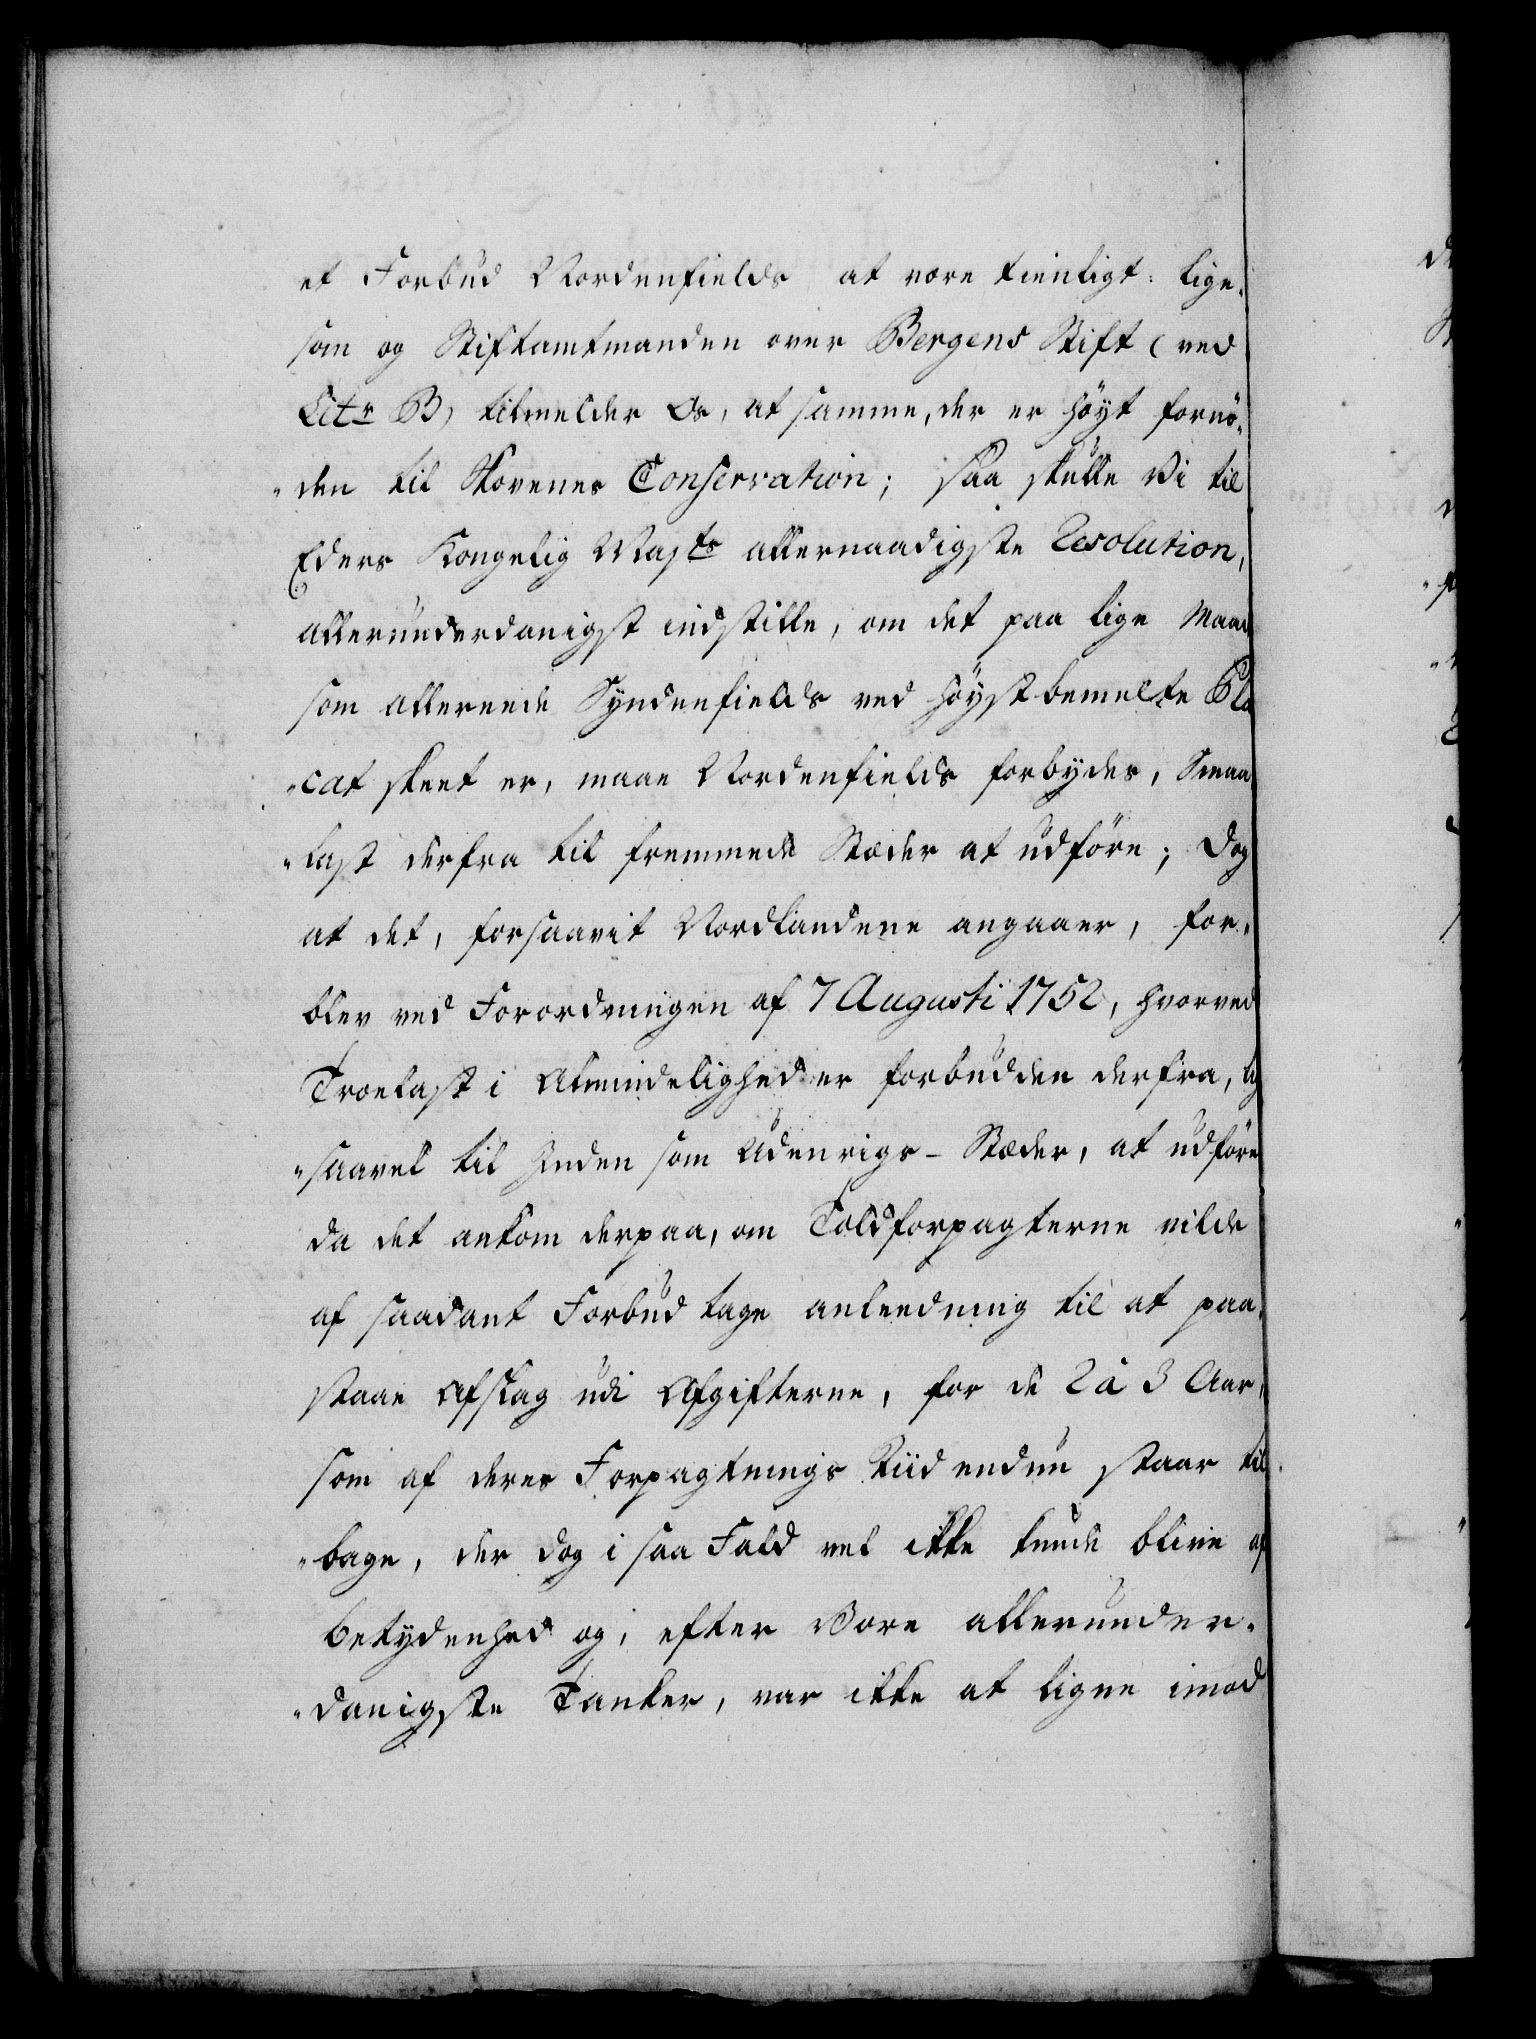 et Forbud Nordenfields at være tienligt: lige-
som og Stiftamtmanden over Bergens Stift (ved
Litr B) tilmelder Os, at samme, der er höyt fornö-
"den til Skovenes Conservation; saa skulle Vi til
Eders Kongelig Maj:ts allernaadigste Resolution,
allerunderdanigst indstille, om det paa lige Maade
som allereede Syndenfields ved höystbemelte Pla
"cat skeet er, maae Nordenfields forbydes, Smaa
"last derfra til fremmede Stæder at udföre; dog
at det, forsaavit Nordlandene angaaer, for-
blev ved Forordningen af 7 Augusti 1752, hvorved
Troelast i Almindelighed er forbudden derfra, lig
"saavel til Inden som Udenrigs-Stæder, at udföre
da det ankom derpaa, om Toldforpagterne vilde
af saadant Forbud tage anleedning til at paa-
staae Afslag udi Afgifterne, for de 2 à 3 Aar,
som af deres Forpagtnings Tiid endnu staar til
"bage, der dog i saa Fald vel ikke kunde blive af
betydenhed og, efter Vore allerunder-
"danigste Tanker, var ikke at ligne imod